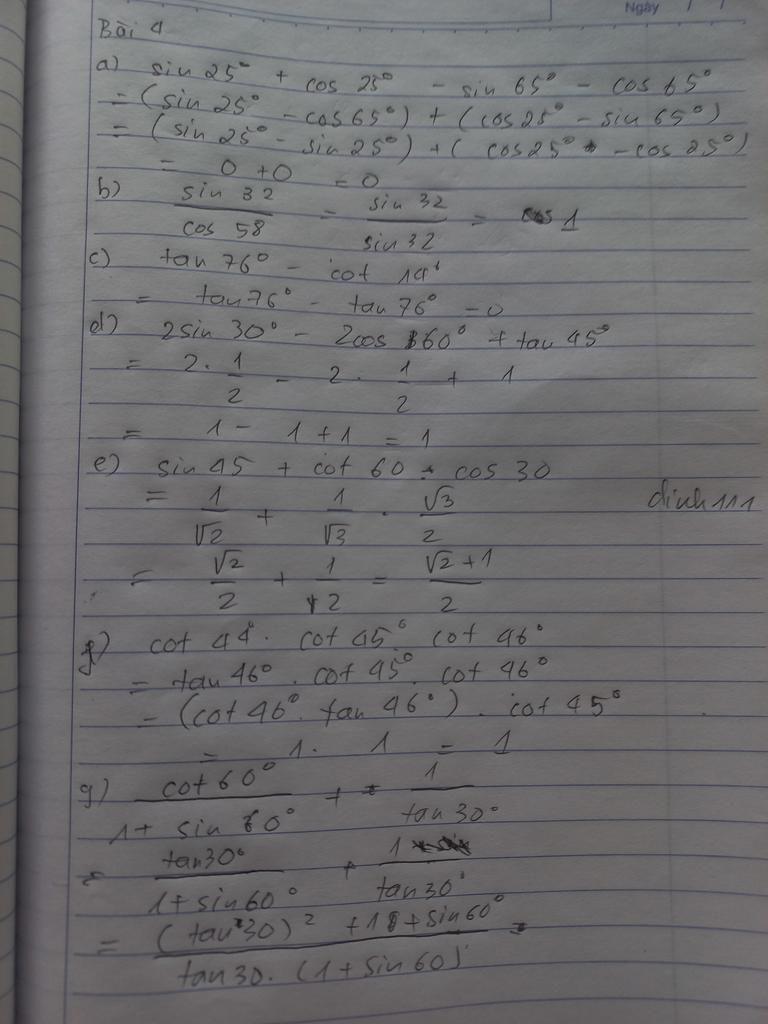 Ngày / /
Bài 4
a) sin 25° + cos 25° - sin 65° - cos 65°
= (sin 25° - cos 65°) + (cos 25° - sin 65°)
= (sin 25° - sin 25°) + (cos 25° - cos 25°)
= 0 + 0 = 0
b) sin 32 / cos 58 = sin 32 / sin 32 = 1
c) tan 76° - cot 14°
= tan 76° - tan 76° = 0
d) 2sin 30° - 2cos 60° + tan 45°
= 2 . 1/2 - 2 . 1/2 + 1
= 1 - 1 + 1 = 1
e) sin 45 + cot 60 . cos 30
= 1/√2 + 1/√3 . √3/2
dinh 111
= √2/2 + 1/2 = (√2 + 1)/2
f) cot 44° . cot 45° cot 46°
= tan 46° . cot 45° . cot 46°
= (cot 46° . tan 46°) . cot 45°
= 1 . 1 = 1
g) cot 60° / (1 + sin 60°) + 1 / tan 30°
= tan 30° / (1 + sin 60°) + 1 / tan 30°
= ((tan 30)² + 1 + sin 60°) / (tan 30 . (1 + sin 60)) =